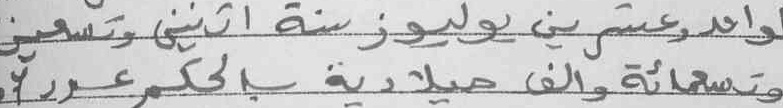 لواحد وعشرين يوليوز سنة اثنين وتسعين
وتسعمائة والف ميلادية بالحكم عدد